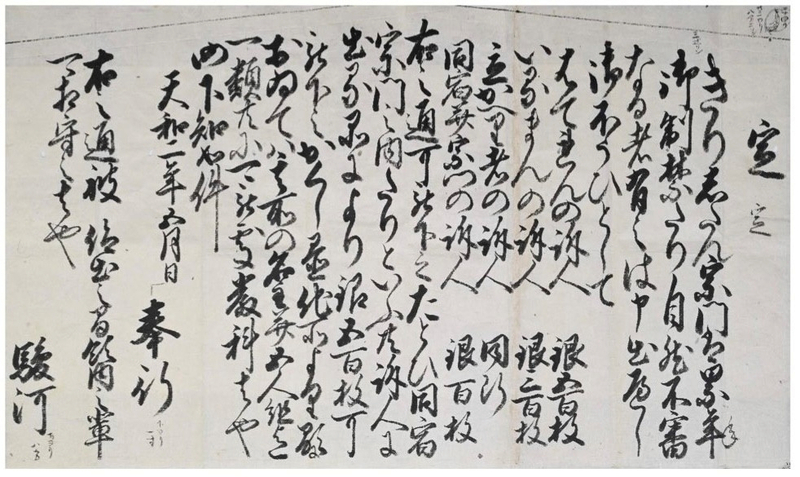 定
定
きりしたん宗門者累年
御制禁たり自然不審
なる者有之は申出へし
御ほうひとして
はてれんの訴人 銀五百枚
いるまんの訴人 銀三百枚
立かへり者の訴人 同断
同宿并宗門の訴人 銀百枚
右之通可被下之たとひ同宿
宗門之内たりといふ共訴人に
出る品により銀五百枚可
被下之かくし置他所より顕
おゐてハ其所の名主并五人組迄
一類共に可被処厳科者也
仍下知如件
天和二年五月日 奉行
右之通被仰出之間領内之輩
可相守者也
駿河